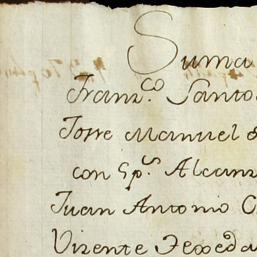 Suma
Franz.co Santos
Torre Manuel
con Gp.s Alcan
Juan Antonio
Vizente Texeda